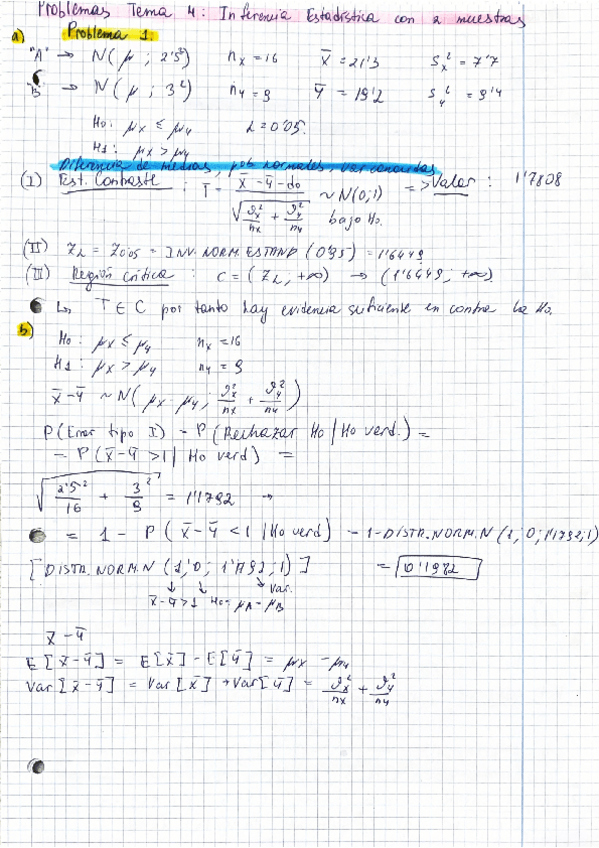 Problemas Tema 4: Inferencia Estadística con 2 muestras
a) Problema 1.
"A" → N(μ; 2'5²) nx = 16 x̄ = 21'3 Sx² = 7'7
"B" → N(μ; 3²) ny = 9 ȳ = 19'2 Sy² = 9'4
H0: μx ≤ μy α = 0'05.
H1: μx > μy
Diferencia de medias, pob normales, var conocidas
(I) Est. Contraste: T = (x̄ - ȳ - d0) / √(σx²/nx + σy²/ny) ~ N(0;1) => Valor: 1'7808
bajo H0.
(II) Zα = Z0'05 = INV.NORM.ESTAND (0'95) = 1'6449
(III) Región crítica: C = (Zα, +∞) → (1'6449; +∞)
↳ T ∈ C por tanto hay evidencia suficiente en contra la H0.
b) H0: μx ≤ μy nx = 16
H1: μx > μy ny = 9
x̄ - ȳ ~ N(μx - μy; σx²/nx + σy²/ny)
P(Error tipo I) = P(Rechazar H0 | H0 verd.) =
= P(x̄ - ȳ > 1 | H0 verd) =
√(2'5²/16 + 3²/9) = 1'1792 →
= 1 - P(x̄ - ȳ < 1 | H0 verd) = 1 - DISTR.NORM.N (1; 0; 1'1792; 1)
[DISTR.NORM.N (1; 0; 1'1792; 1)] = 0'1982
↓ ↓ ↘ Var.
x̄ - ȳ > 1 H0 = μA - μB
x̄ - ȳ
E[x̄ - ȳ] = E[x̄] - E[ȳ] = μx - μy
Var[x̄ - ȳ] = Var[x̄] + Var[ȳ] = σx²/nx + σy²/ny